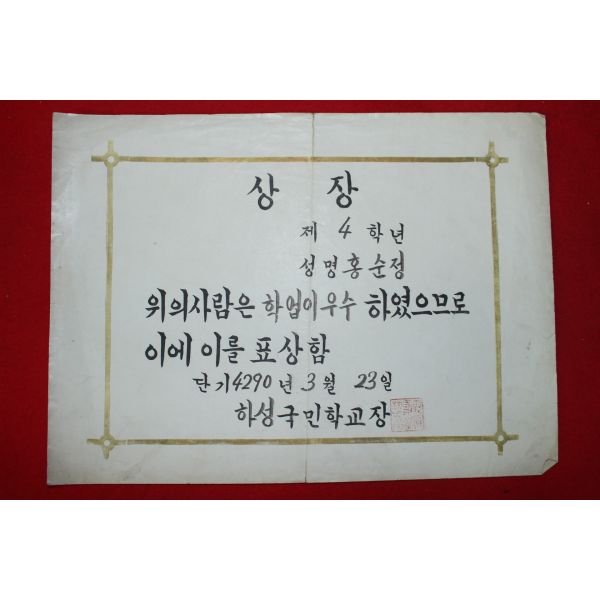 상 장
제 4 학년
성명 홍순정
위의사람은 학업이우수 하였으므로
이에 이를 표상함
단기 4290 년 3 월 23 일
하성국민학교장